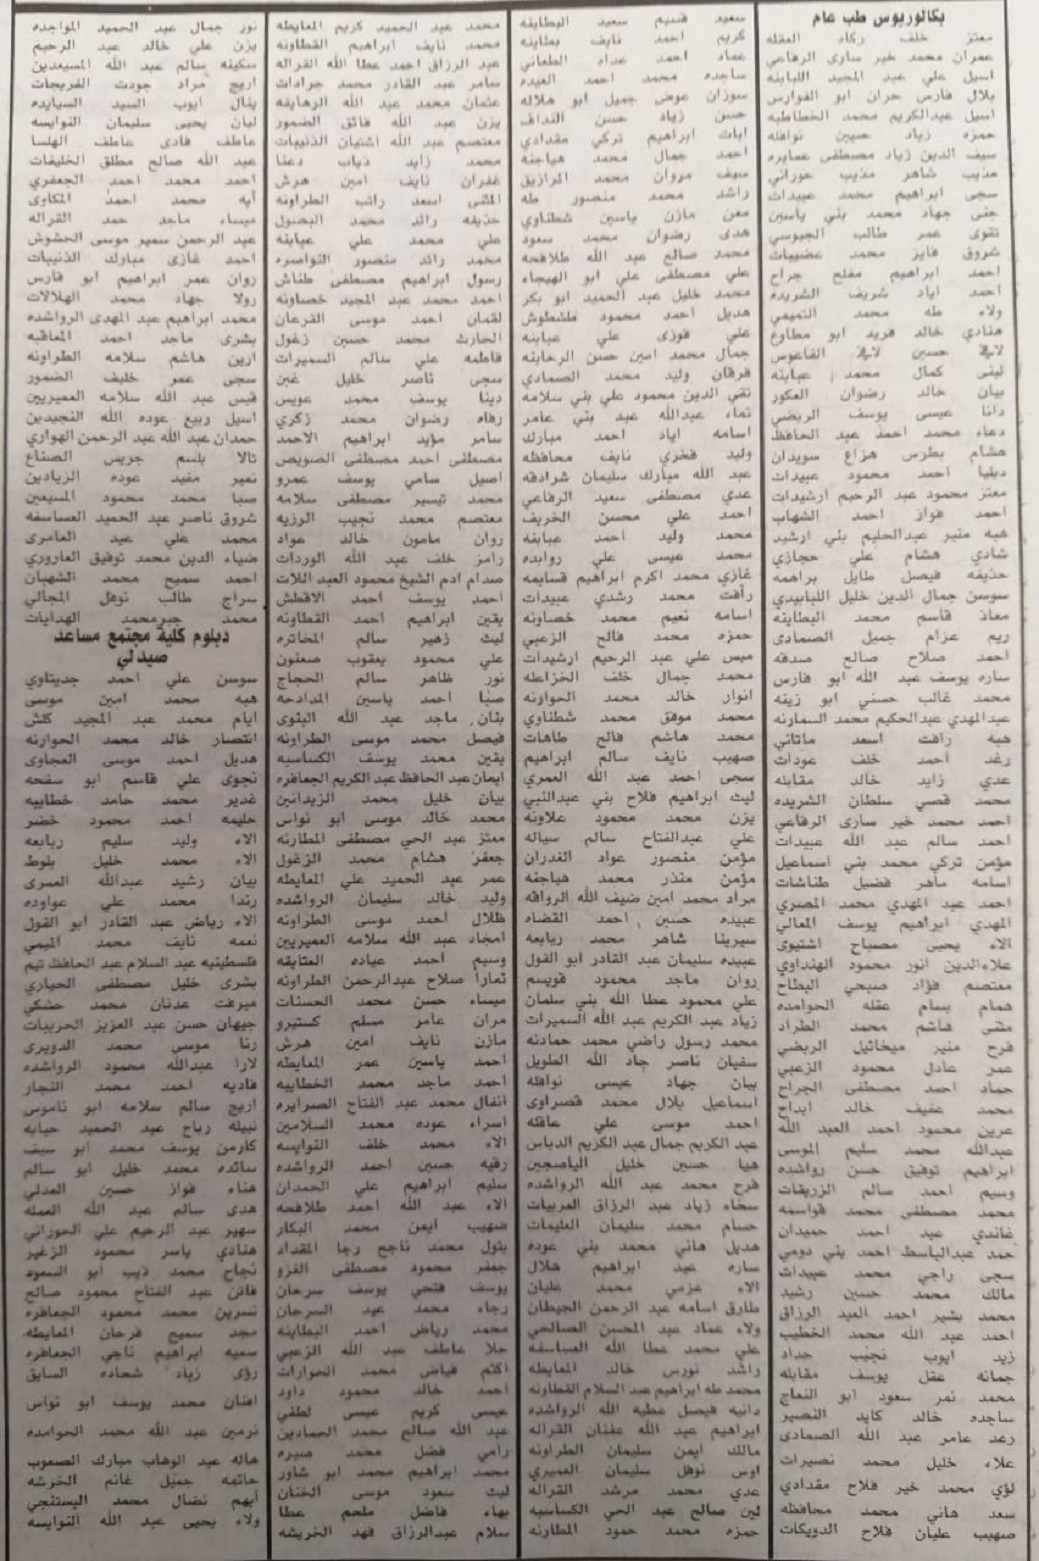 بكالوريوس طب عام
معتز خلف ركاد العقله
عمران محمد خير ساري الرفاعي
اسيل علي عبد المجيد اللبابنه
بلال فارس حران ابو الفوارس
اسيل عبدالكريم محمد الخطاطبه
حمزه زياد حسين نوافله
سيف الدين زياد مصطفى عمايره
مذيب شاهر مذيب حوراني
سجى ابراهيم محمد عبيدات
جنى جهاد محمد بني ياسين
تقوى عمر طالب الجيوسي
شروق فايز محمد عضيبات
احمد ابراهيم مفلح جراح
احمد اياد شريف الشريده
ولاء طه محمد التميمي
هنادي خالد فريد ابو مطاوع
لافي حسين لافي الفاعوس
ليلى كمال محمد عبابنه
بيان خالد رضوان العكور
دانا عيسى يوسف الربضي
دعاء محمد احمد عبد الحافظ
هشام بطرس هزاع سويدان
ديليا احمد محمود عبيدات
معتز محمود عبد الرحيم ارشيدات
احمد فواز احمد الشهاب
هبه منير عبدالحليم بني ارشيد
شادي هشام علي حجازي
حذيفه فيصل طايل براهمه
سوسن جمال الدين خليل اللبابيدي
معاذ قاسم محمد البطاينه
ريم عزام جميل الصمادي
احمد صلاح صالح صدقه
ساره يوسف عبد الله ابو فارس
محمد غالب حسني ابو زيقه
عبدالمهدي عبدالحكيم محمد السماونه
هبه رافت اسعد ماتاني
رغد احمد خلف عودات
عدي زايد خالد مقابله
محمد قصي سلطان الشريده
احمد محمد خير ساري الرفاعي
احمد سالم عبد الله عبيدات
مؤمن تركي محمد بني اسماعيل
اسامه ماهر فضيل طناشات
احمد عبد المهدي محمد المصري
المهدي ابراهيم يوسف المعالي
الاء يحيى مصباح اشتيوي
علاءالدين انور محمود الهنداوي
معتصم فؤاد صبحي البطاح
همام بسام عقله الحوامده
مثنى هاشم محمد الطراد
فرح منير ميخائيل الربضي
عمر عادل محمود الزعبي
حماد احمد مصطفى الجراح
محمد عفيف خالد ابداح
عرين محمود احمد العبد الله
عبدالله محمد سليم الموسى
ابراهيم توفيق حسن رواشده
وسيم احمد سالم الزريقات
محمد مصطفى محمد قواسمه
غاندي عيد احمد حميدان
حمد عبدالباسط احمد بني دومي
سجى راجي محمد عبيدات
مالك محمد حسين رشيد
محمد بشير احمد العبد الرزاق
احمد عبد الله محمد الخطيب
زيد ايوب نجيب حداد
جمانه عقل يوسف مقابله
محمد نمر سعود ابو النماج
ساجده خالد كايد النصير
رعد عامر عبد الله الصمادي
علاء خليل محمد نصيرات
لؤي محمد خير فلاح مقدادي
سعد هاني محمد محافظه
صهيب عليان فلاح الدويكات
سعيد قسيم سعيد البطاينه
كريم احمد نايف بطاينه
عماد احمد عداد الطعاني
ساجده محمد احمد العبده
سوزان عوض جميل ابو هلاله
حسن زياد حسن النداف
ايات ابراهيم تركي مقدادي
احمد جمال محمد هياجنه
سيف مروان محمد المرازيق
راشد محمد منصور طه
معن مازن ياسين شطناوي
هدى رضوان محمد سعود
محمد صالح عبد الله طلافحه
علي مصطفى علي ابو الهيجاء
محمد خليل عبد الحميد ابو بكر
هديل احمد محمود طشطوش
علي فوزي علي عبابنه
جمال محمد امين حسن الرحابنه
فرقان وليد محمد الصمادي
تقي الدين محمود علي بني سلامه
نماء عبدالله عبد بني عامر
اسامه اياد احمد مبارك
وليد فخري نايف محافظه
عبد الله مبارك سليمان شرادقه
عدي مصطفى سعيد الرفاعي
احمد علي محسن الخريف
محمد وليد احمد عبابنه
محمد عيسى علي روابده
غازي محمد اكرم ابراهيم قسايمه
رأفت محمد رشدي عبيدات
اسامه نعيم محمد خصاونه
حمزه محمد فالح الزعبي
ميس علي عبد الرحيم ارشيدات
محمد جمال خلف الخزاعله
انوار خالد محمد الحوارنه
محمد موفق محمد شطناوي
محمد هاشم فالح طاهات
صهيب نايف سالم ابراهيم
سجى احمد عبد الله العمري
ليث ابراهيم فلاح بني عبدالنبي
يزن محمد محمود علاونه
علي عبدالفتاح سالم سياله
مؤمن منصور عواد الفدران
مؤمن منذر محمد هياجنه
مراد محمد امين ضيف الله الرواقه
عبيده حسين احمد القضاه
سيرينا شاهر محمد ربابعه
عبيده سليمان عبد القادر ابو الفول
روان ماجد محمود قويسم
علي محمود عطا الله بني سلمان
زياد عبد الكريم عبد الله السميرات
محمد رسول راضي محمد حمادنه
سفيان ناصر جاد الله الطويل
بيان جهاد عيسى نوافله
اسماعيل بلال محمد قصراوي
احمد موسى علي عافله
عبد الكريم جمال عبد الكريم الدباس
هبا حسين خليل الياصجين
فرح محمد عبد الله الرواشده
سخاء زياد عبد الرزاق العربيات
حسام محمد سليمان العليمات
هديل هاني محمد بني عوده
ساره عبد ابراهيم هلال
الاء عزمي محمد عليان
طارق اسامه عبد الرحمن الجيطان
ولاء عماد عبد المحسن الصالحي
علي محمد عطا الله العساسفه
راشد نورس خالد المعايطه
محمد طه ابراهيم عبد السلام القطاونه
دانيه فيصل عطيه الله الرواشده
ابراهيم عبد الله عفنان القراله
مالك ايمن سليمان الطراونه
اوس نوفل سليمان العميري
عدي محمد مرشد القراله
لين صالح عبد الحي الكساسبه
حمزه محمد حمود المطارنه
محمد عبد الحميد كريم المعايطه
محمد نايف ابراهيم القطاونه
عبد الرزاق احمد عطا الله القراله
سامر عبد القادر محمد جرادات
عثمان محمد عبد الله الرهايفه
يزن عبد الله فائق الضمور
معتصم عبد الله اشتيان الذنيبات
محمد زايد ذياب دعنا
غفران نايف امين هرش
المثنى اسعد راتب الطراونه
حذيفه رائد محمد البصول
علي محمد علي عبابنه
محمد رائد منصور النواصره
رسول ابراهيم مصطفى طناش
احمد محمد عبد المجيد خصاونه
لقمان احمد موسى القرعان
الحارث محمد حسين زغول
فاطمه علي سالم السميرات
سجى ناصر خليل غبن
دينا يوسف محمد عويس
رهام رضوان محمد زكري
سامر مؤيد ابراهيم الاحمد
مصطفى احمد مصطفى الصويص
اصيل سامي يوسف عمرو
محمد تيسير مصطفى سلامه
معتصم محمد نجيب الرزيه
روان مامون خالد عواد
رامز خلف عبد الله الوردات
صدام ادم الشيخ محمود العبد اللات
احمد يوسف احمد الاقطش
يقين ابراهيم احمد القطاونه
ليث زهير سالم المخاتره
علي محمود يعقوب صعنون
نور ظاهر سالم الحجاج
صبا احمد ياسين المدادحه
بنان ماجد عبد الله البثوي
فيصل محمد موسى الطراونه
يقين محمد يوسف الكساسبه
ايمان عبد الحافظ عبد الكريم الجعافره
بيان خليل محمد الزيدانين
محمد خالد موسى ابو نواس
معتز عبد الحي مصطفى المطارنه
جعفر هشام محمد الزغول
عمر عبد الحميد علي المعايطه
وليد خالد سليمان الرواشده
طلال احمد موسى الطراونه
امجاد عبد الله سلامه العميريين
وسيم احمد عياده العتايقه
تمارا صلاح عبدالرحمن الطراونه
ميساء حسن محمد الحسنات
مران عامر مسلم كستيرو
مازن نايف امين هرش
احمد ياسين عمر المعايطه
احمد ماجد محمد الخطابيه
انفال محمد عبد الفتاح الصرايره
اسراء عوده محمد السلامين
الاء محمد خلف النوايسه
رقيه حسين احمد الرواشده
سليم ابراهيم علي الحمدان
الاء عبد الله احمد طلافحه
صهيب ايمن محمد البكار
بتول محمد ناجح رجا المقداد
جعفر محمود مصطفى الغزو
يوسف فتحي يوسف سرحان
رجاء محمد عيد السرحان
محمد رياض احمد البطاينه
حلا عاطف عبد الله الزعبي
اكثم فياض محمد الحوارات
احمد خالد محمود داود
عيسى كريم عيسى لطفي
عبد الله صالح محمد الحمادين
رامي فضل محمد صبره
محمد ابراهيم محمد ابو شاور
ليث سعود موسى الختان
بهاء فاضل ملحم عطا
سلام عبدالرزاق فهد الخريشه
نور جمال عبد الحميد المواجده
يزن علي خالد عبد الرحيم
سكينه سالم عبد الله المسيعدين
اريج مراد جودت الفريجات
ينال ايوب السيد السيايده
ليان يحيى سليمان النوايسه
عاطف فادي عاطف الهلسا
عبد الله صالح مطلق الخليفات
احمد محمد احمد الجعفري
آيه محمد احمد المكاوي
ميساء ماجد حمد القراله
عبد الرحمن سمير موسى الحشوش
احمد غازي مبارك الذنيبات
روان عمر ابراهيم ابو فارس
رولا جهاد محمد الهلالات
محمد ابراهيم عبد المهدي الرواشده
بشرى ماجد احمد المعاقبه
ارين هاشم سلامه الطراونه
سجى عمر خليف الضمور
قيس عبد الله سلامه العميريين
اسيل ربيع عوده الله النجيدين
حمدان عبد الله عبد الرحمن الهواري
تالا باسم جريس الصناع
نمير مفيد عوده الزيادين
صبا محمد محمود المسيعين
شروق ناصر عبد الحميد العساسفه
محمد علي عيد العامري
ضياء الدين محمد توفيق العاروري
احمد سميح محمد الشهبان
سراج طالب نوفل المجالي
محمد جبرمحمد الهدايات
دبلوم كلية مجتمع مساعد
صيدلي
سوسن علي احمد جديتاوي
هبه محمد امين موسى
ايام محمد عبد المجيد كلش
انتصار خالد محمد الحوارنه
هديل احمد موسى العجاوي
نجوى علي قاسم ابو سفحه
غدير محمد حامد خطايبه
حليمه احمد محمود خضر
الاء وليد سليم ربابعه
الاء محمد خليل بلوط
بيان رشيد عبدالله العمري
رندا محمد علي عواوده
الاء رياض عبد القادر ابو الفول
نعمه نايف محمد الميمي
فلسطينيه عبد السلام عبد الحافظ تيم
بشرى خليل مصطفى الحياري
ميرفت عدنان محمد حشكي
جيهان حسن عبد العزيز الحريبات
رنا موسى محمد الدويري
لارا عبدالله محمود الرواشده
فاديه احمد محمد النجار
اريج سالم سلامه ابو ناموس
نبيله رباح عبد الحميد حبابه
كارمن يوسف محمد ابو سيف
سائده محمد خليل ابو سالم
هناء فواز حسين العدلي
هدى سالم عبد الله العمله
سهير عبد الرحيم علي الحوراني
هنادي ياسر محمود الزغير
نجاح محمد ذيب ابو السعود
فاتن عبد الفتاح محمود صالح
نسرين محمد محمود الجعافره
مجد سميح فرحان المعايطه
سميه ابراهيم ناجي الجعافره
رؤى زياد شحاده السابق
افنان محمد يوسف ابو نواس
نرمين عبد الله محمد الحوامده
هاله عبد الوهاب مبارك الصعوب
حاتمه جميل غانم الخرشه
أيهم نضال محمد البستنجي
ولاء يحيى عبد الله النوايسه